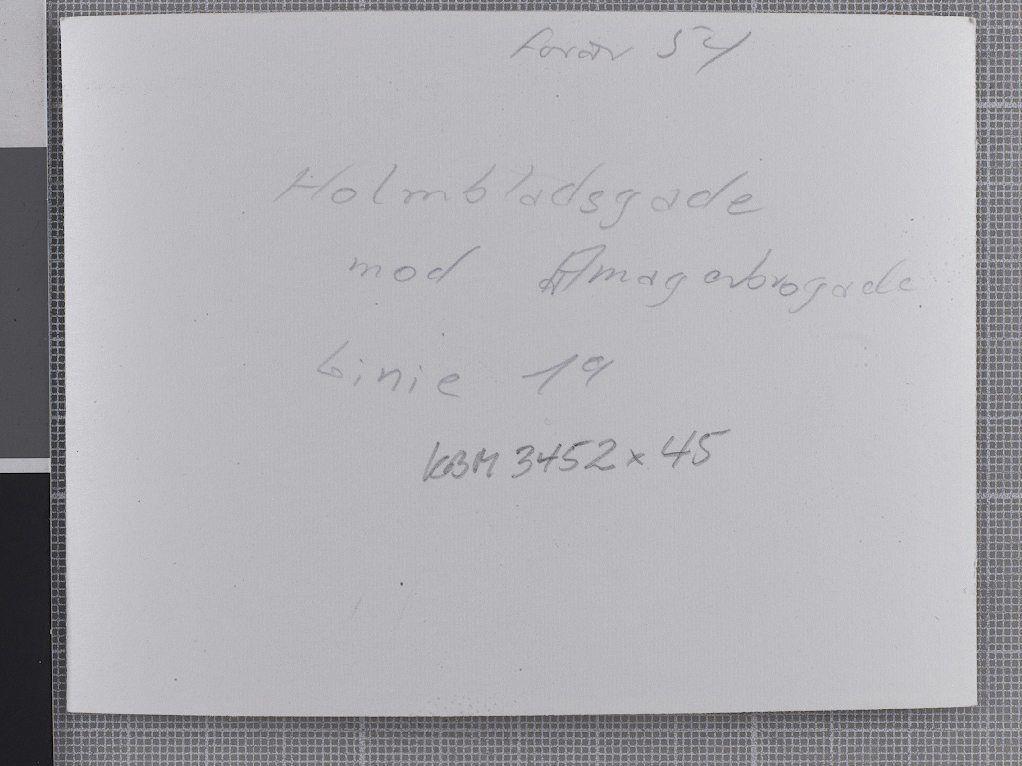 Forår 54
Holmbladsgade
mod Amagerbrogade
Linie 19
KBM 3452 x 45